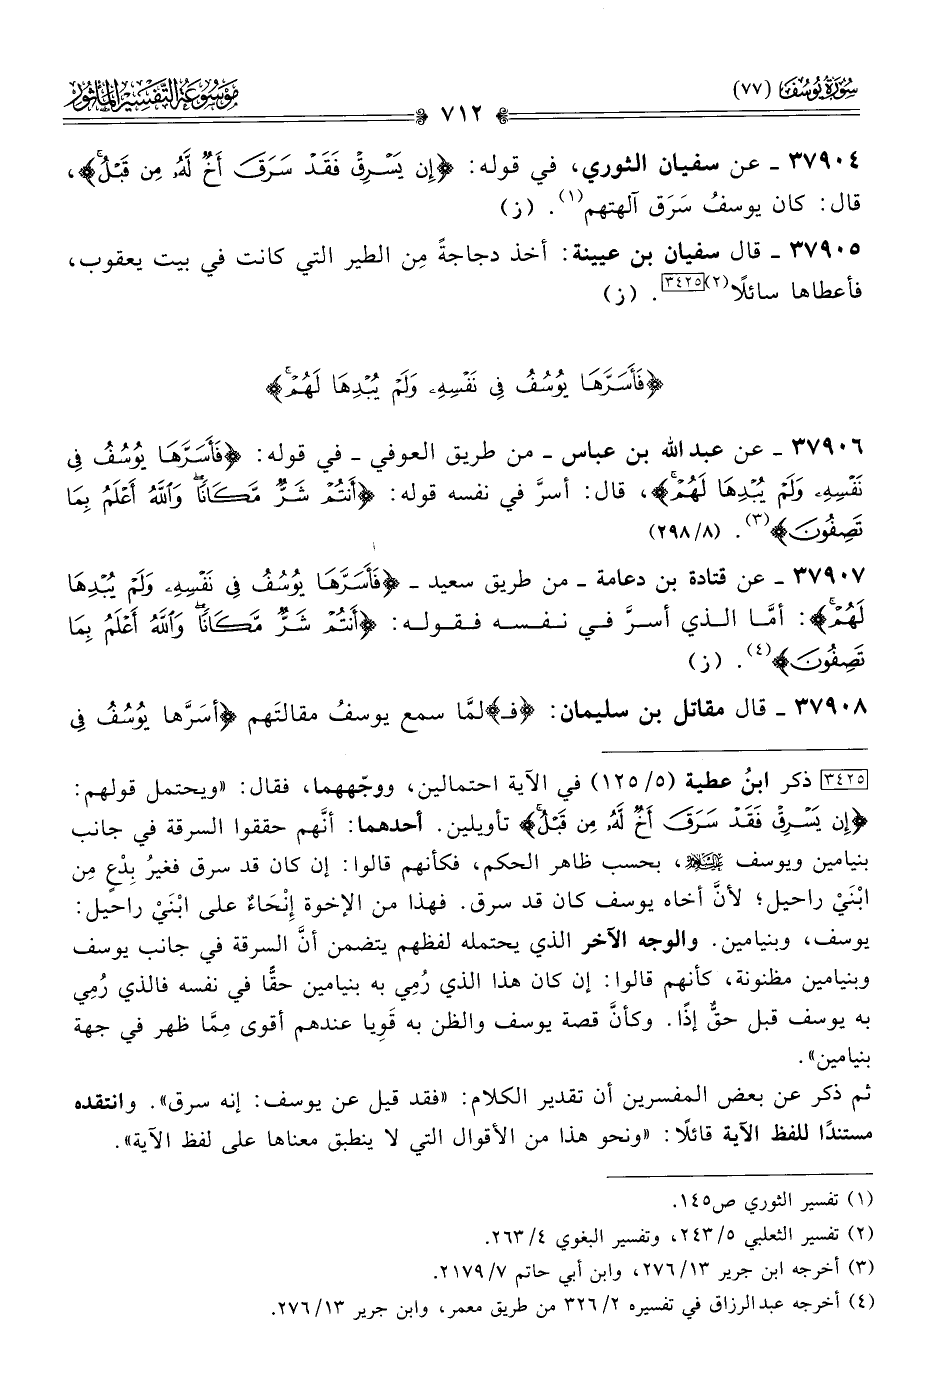 سُورَةُ يُوسُفَ (٧٧)
٧١٢
مَوْسُوعَةُ التَّفْسِيرِ المَأْثُورِ
٣٧٩٠٤ ـ عن سفيان الثوري، في قوله: ﴿إِن يَسْرِقْ فَقَدْ سَرَقَ أَخٌ لَّهُۥ مِن قَبْلُۚ﴾،
قال: كان يوسفُ سَرَق آلهتهم(١). (ز)
٣٧٩٠٥ ـ قال سفيان بن عيينة: أخذ دجاجةً مِن الطير التي كانت في بيت يعقوب،
فأعطاها سائلًا(٢)[٣٤٢٥]. (ز)
﴿فَأَسَرَّهَا يُوسُفُ فِى نَفْسِهِۦ وَلَمْ يُبْدِهَا لَهُمْۚ﴾
٣٧٩٠٦ ـ عن عبد الله بن عباس ـ من طريق العوفي ـ في قوله: ﴿فَأَسَرَّهَا يُوسُفُ فِى
نَفْسِهِۦ وَلَمْ يُبْدِهَا لَهُمْۚ﴾، قال: أسرَّ في نفسه قوله: ﴿أَنتُمْ شَرٌّ مَّكَانًاۖ وَٱللَّهُ أَعْلَمُ بِمَا
تَصِفُونَ﴾(٣). (٢٩٨/٨)
٣٧٩٠٧ ـ عن قتادة بن دعامة ـ من طريق سعيد ـ ﴿فَأَسَرَّهَا يُوسُفُ فِى نَفْسِهِۦ وَلَمْ يُبْدِهَا
لَهُمْۚ﴾: أمَّا الذي أسرَّ في نفسه فقوله: ﴿أَنتُمْ شَرٌّ مَّكَانًاۖ وَٱللَّهُ أَعْلَمُ بِمَا
تَصِفُونَ﴾(٤). (ز)
٣٧٩٠٨ ـ قال مقاتل بن سليمان: ﴿فـ﴾لمَّا سمع يوسفُ مقالتَهم ﴿أسَرَّها يُوسُفُ فِى
[٣٤٢٥] ذكر ابنُ عطية (١٢٥/٥) في الآية احتمالين، ووجّههما، فقال: «ويحتمل قولهم:
﴿إِن يَسْرِقْ فَقَدْ سَرَقَ أَخٌ لَّهُۥ مِن قَبْلُۚ﴾ تأويلين. أحدهما: أنَّهم حققوا السرقة في جانب
بنيامين ويوسف ﵉، بحسب ظاهر الحكم، فكأنهم قالوا: إن كان قد سرق فغيرُ بِدْعٍ مِن
ابْنَيْ راحيل؛ لأنَّ أخاه يوسف كان قد سرق. فهذا من الإخوة إنْحَاءٌ على ابْنَيْ راحيل:
يوسف، وبنيامين. والوجه الآخر الذي يحتمله لفظهم يتضمن أنَّ السرقة في جانب يوسف
وبنيامين مظنونة، كأنهم قالوا: إن كان هذا الذي رُمِي به بنيامين حقًّا في نفسه فالذي رُمِي
به يوسف قبل حقٌّ إذًا. وكأنَّ قصة يوسف والظن به قَوِيا عندهم أقوى مِمَّا ظهر في جهة
بنيامين».
ثم ذكر عن بعض المفسرين أن تقدير الكلام: «فقد قيل عن يوسف: إنه سرق». وانتقده
مستندًا للفظ الآية قائلًا: «ونحو هذا من الأقوال التي لا ينطبق معناها على لفظ الآية».
(١) تفسير الثوري ص١٤٥.
(٢) تفسير الثعلبي ٢٤٣/٥، وتفسير البغوي ٢٦٣/٤.
(٣) أخرجه ابن جرير ٢٧٦/١٣، وابن أبي حاتم ٢١٧٩/٧.
(٤) أخرجه عبد الرزاق في تفسيره ٣٢٦/٢ من طريق معمر، وابن جرير ٢٧٦/١٣.